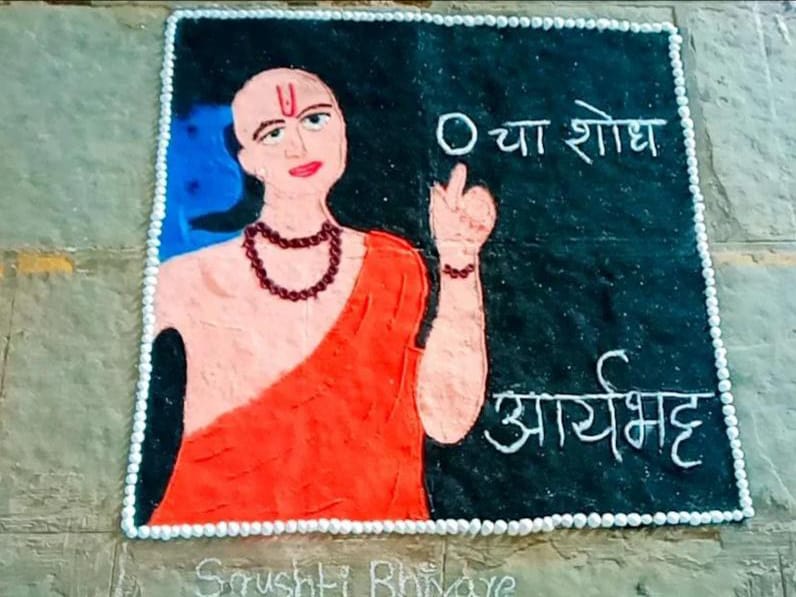 0 चा शोध
आर्यभट्ट
Srushti Bhivare